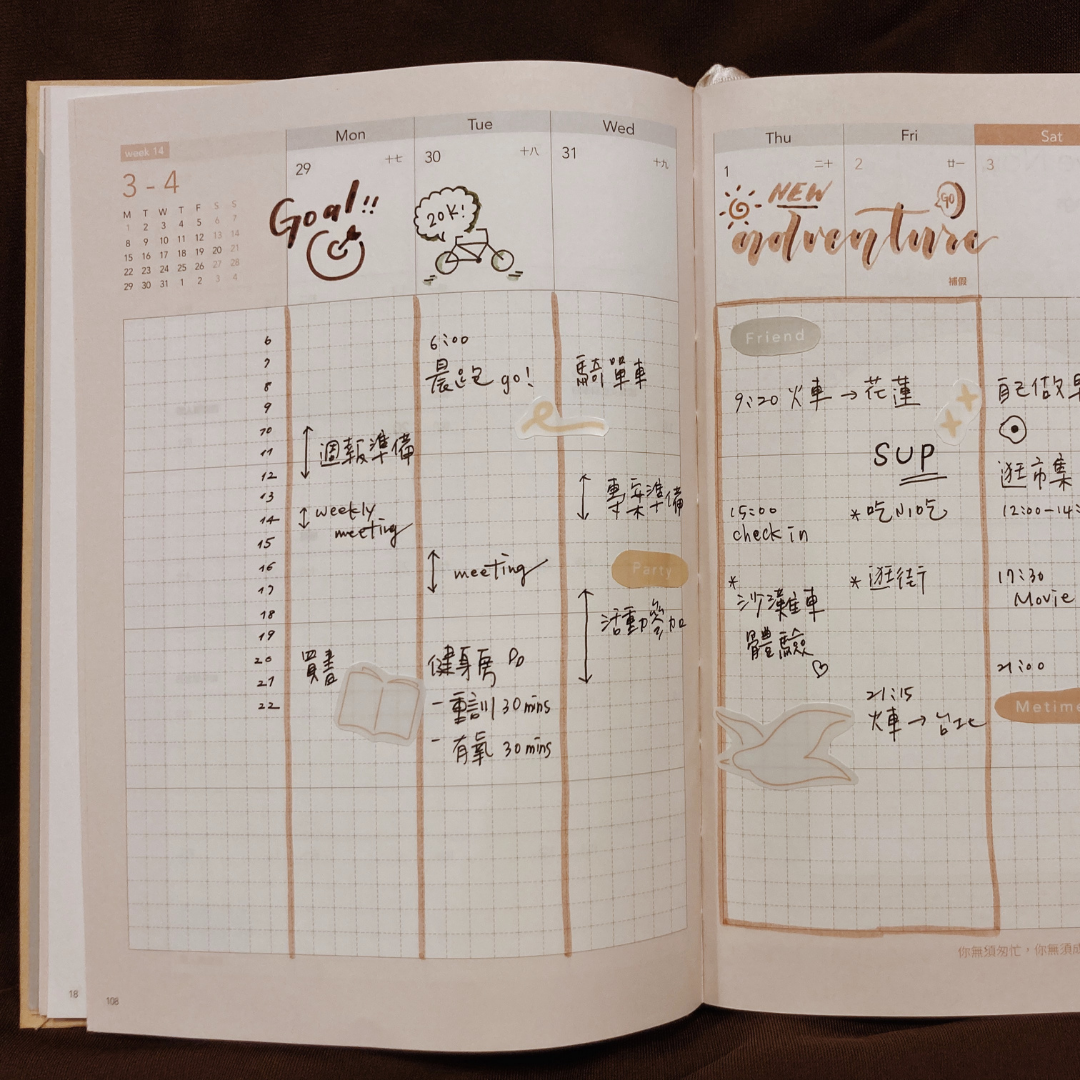 week 14
3 - 4
M T W T F S S
1 2 3 4 5 6 7
8 9 10 11 12 13 14
15 16 17 18 19 20 21
22 23 24 25 26 27 28
29 30 31 1 2 3 4
Mon
29 十七
Goal!!
Tue
30 十八
20K!
Wed
31 十九
6
7
8
9
10
11
12
13
14
15
16
17
18
19
20
21
22
週報準備
weekly
meeting
買書
6:00
晨跑 go!
meeting
健身房 go
- 重訓 30 mins
- 有氧 30 mins
騎單車
專案準備
Party
活動參加
18
108
Thu
1 二十
Fri
2 廿一
Sat
3
NEW
adventure
GO
補假
Friend
9:20 火車 → 花蓮
SUP
15:00
check in
*
沙灘車
體驗
* 吃小吃
* 逛街
21:15
火車 → 台北
自己做早
逛市集
12:00-14:
17:30
Movie
21:00
Metime
你無須匆忙，你無須